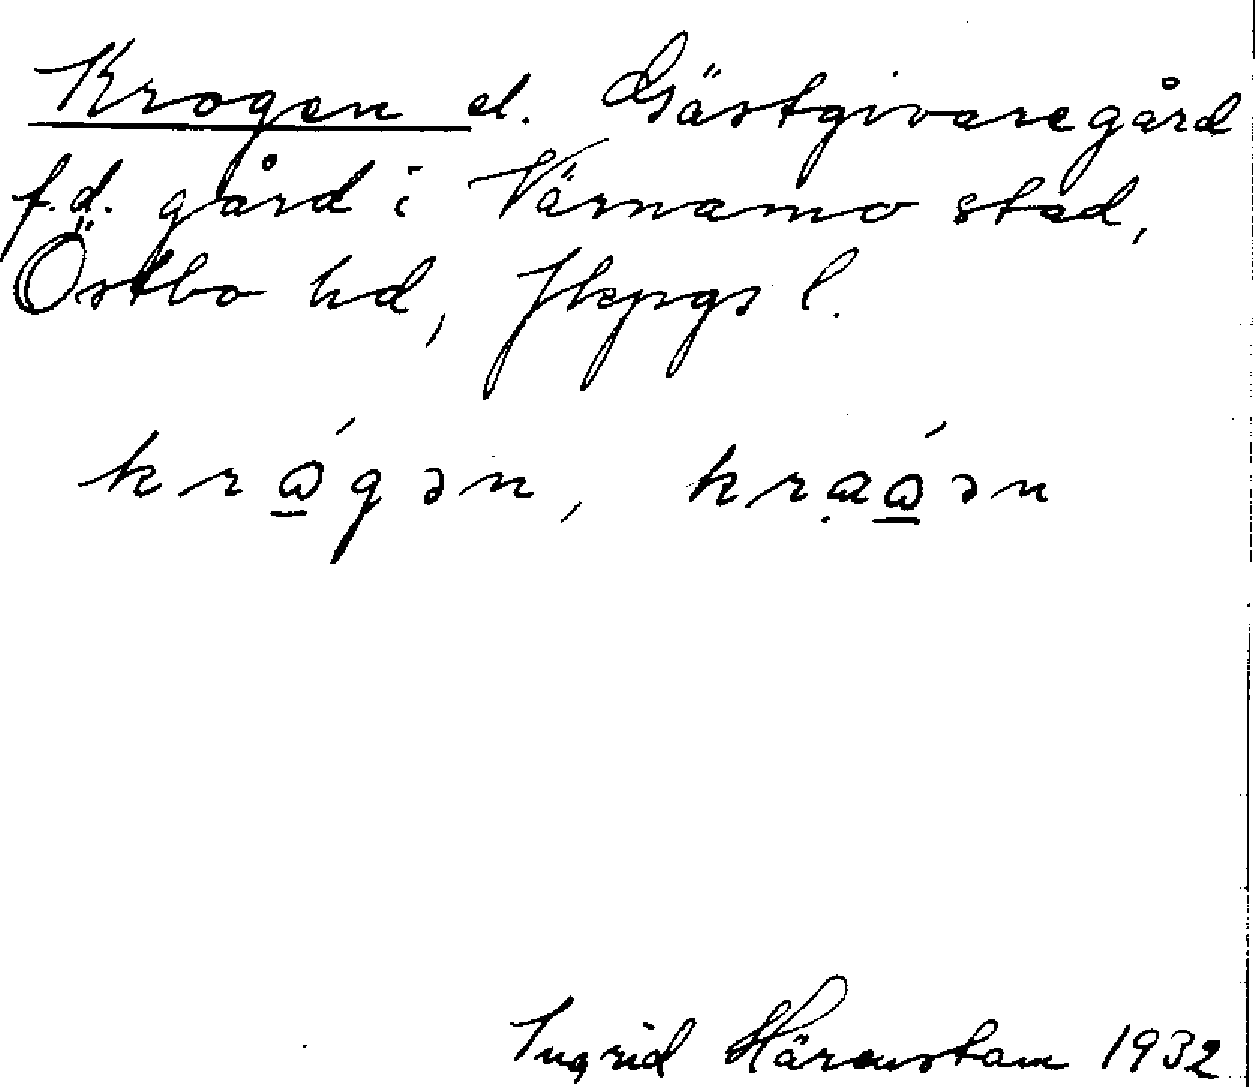 Krogen el. Gästgivaregård
f.d. gård i Värnamo stad,
Östbo hd, Jkpgs l.
krώ̲gən, krạώ̲ən
Ingrid Härenstam 1932